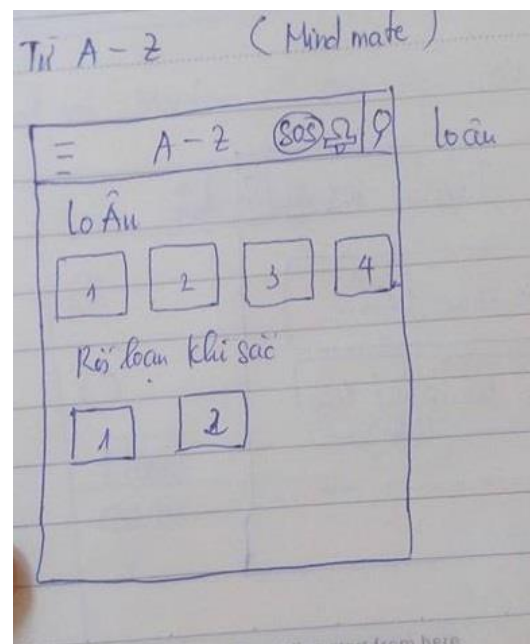 Từ A - Z (Mind mate)
A - Z SOS
lo âu
lo Âu
1 2 3 4
Rối loạn khí sắc
1 2
from here